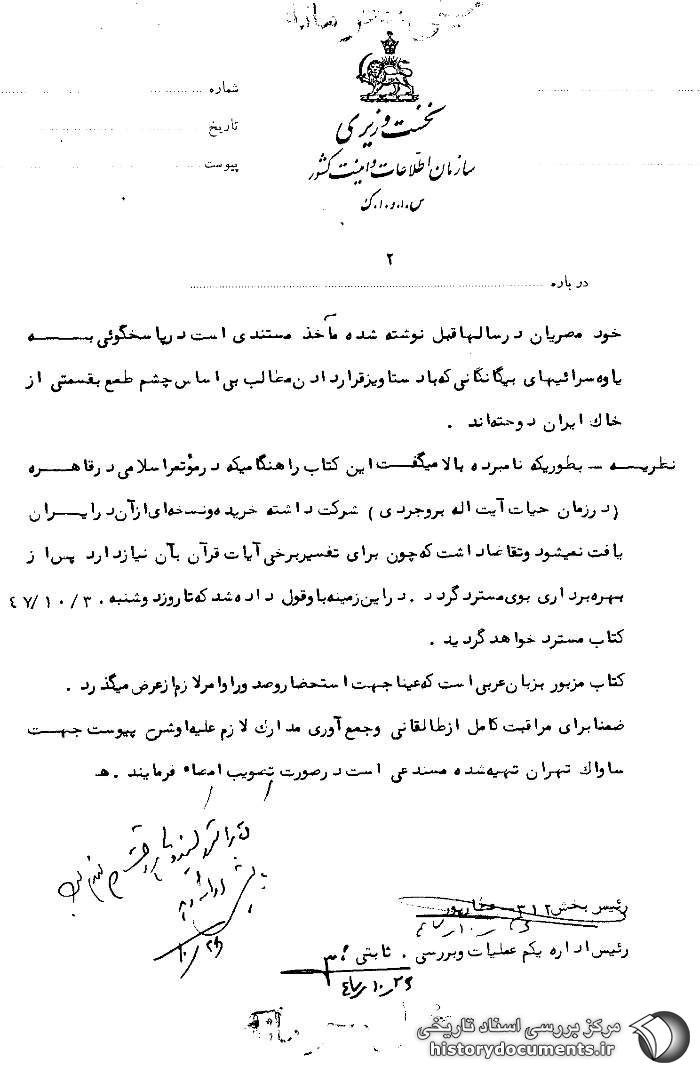 شماره
تاریخ
پیوست
نخست وزیری
سازمان اطلاعات و امنیت کشور
س.ا.و.ا.ک
۲
درباره
خود مصریان در سالهاقبل نوشته شده مآخذ مستندی است درپاسخگوئی بـــه
یاوه سرائیهای بیگانگانی که بادستاویزقراردادن مطالب بی اساس چشم طمع بقسمتی از
خاك ایران دوخته‌اند .
نظریه ـ بطوریکه نامبرده بالا میگفت این کتاب راهنگامیکه درمؤتمراسلامی درقاهره
(درزمان حیات آیت اله بروجردی) شرکت داشته خریده ونسخه‌ای ازآن درایران
یافت نمیشود وتقاضاداشت که چون برای تفسیربرخی آیات قرآن بآن نیازدارد پس از
بهره‌برداری بوی مسترد گردد . دراین زمینه باوقول داده شد که تا روزدوشنبه ۴۷/۱۰/۳۰
کتاب مسترد خواهد گردید .
کتاب مزبور بزبان عربی است که عینا جهت استحضاروصدوراوامرلازم ازعرض میگذرد .
ضمنا برای مراقبت کامل ازطالقانی وجمع آوری مدارك لازم علیه اوشرح پیوست جهت
ساواك تهران تهیه شده مستدعی است درصورت تصویب امضاء فرمایند . هـ
رئیس بخش ۳۱۲
رئیس اداره یکم عملیات وبررسی . ثابتی
مرکز بررسی اسناد تاریخی
historydocuments.ir